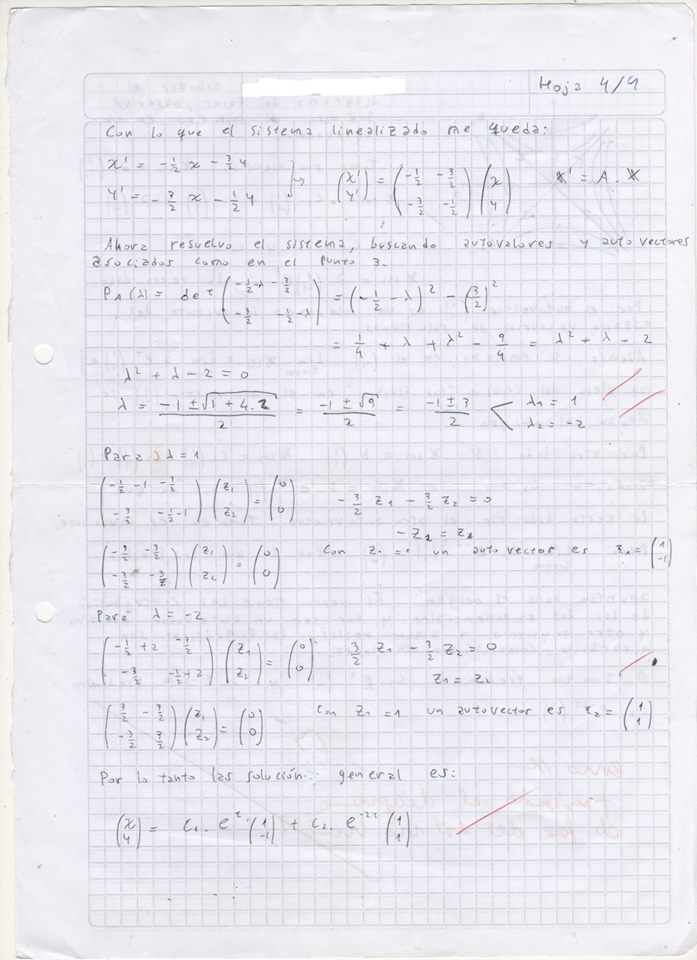 Hoja 4/4
Con lo que el sistema linealizado me queda:
x' = -1/2 x - 3/2 y
y' = -3/2 x - 1/2 y
(x' y') = (-1/2 -3/2 -3/2 -1/2) (x y) X' = A . X
Ahora resuelvo el sistema, buscando autovalores y autovectores
asociados como en el punto 3.
P_A(λ) = det (-1/2-λ -3/2 -3/2 -1/2-λ) = (-1/2 - λ)² - (3/2)²
= 1/4 + λ + λ² - 9/4 = λ² + λ - 2
λ² + λ - 2 = 0
λ = -1 ± √1 + 4.2 / 2 = -1 ± √9 / 2 = -1 ± 3 / 2 < λ1 = 1 λ2 = -2
Para λ = 1
(-1/2 -1 -3/2 -3/2 -1/2-1) (z1 z2) = (0 0) -3/2 z1 - 3/2 z2 = 0
(-3/2 -3/2 -3/2 -3/2) (z1 z2) = (0 0) con z1 = 1 un autovector es z1 = (1 -1)
Para λ = -2
(-1/2 +2 -3/2 -3/2 -1/2+2) (z1 z2) = (0 0) 3/2 z1 - 3/2 z2 = 0
z1 = z2
(3/2 -3/2 -3/2 3/2) (z1 z2) = (0 0) con z1 = 1 un autovector es z2 = (1 1)
Por lo tanto las solución general es:
(x y) = c1 . e^t . (1 -1) + c2 . e^-2t (1 1)